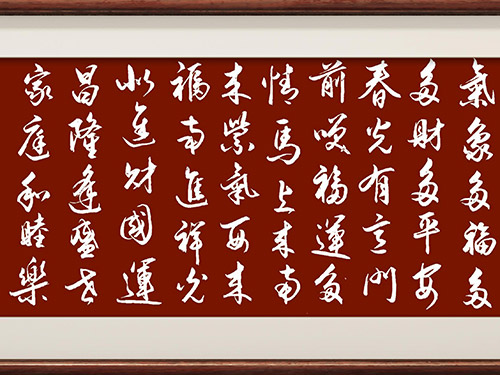 氣象多福多
多財多平安
春光有意門
前福運多
情馬上来東
来紫氣西来
福南進祥光
北進財國運
昌隆逢盛世
家庭和睦樂